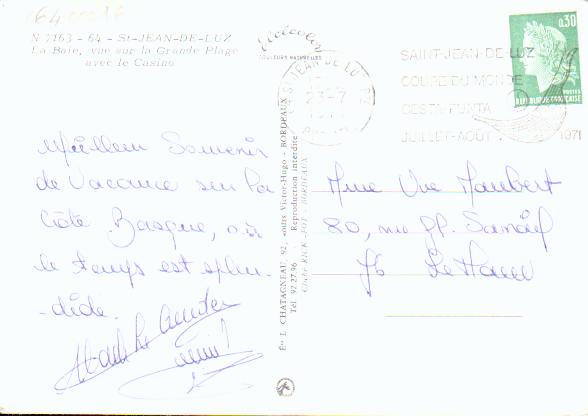 N 7163 - 64 - St-JEAN-DE-LUZ
La Baie, vue sur la Grande Plage
avec le Casino
COULEURS NATURELLES
St JEAN DE LUZ
23-7
0,30
POSTES
REPUBLIQUE FRANCAISE
SAINT-JEAN-DE-LUZ
COUPE DU MONDE
CESTA PUNTA
JUILLET-AOUT 1971
Meilleur Souvenir
de Vacance sur la
Côte Basque, où
le temps est splen-
-dide.
Eds L. CHATAGNEAU, 92, cours Victor-Hugo - BORDEAUX
Tél. 92.27.96 - Reproduction interdite
BORDEAUX
Mme Vve Maubert
80, rue
76 Le Havre